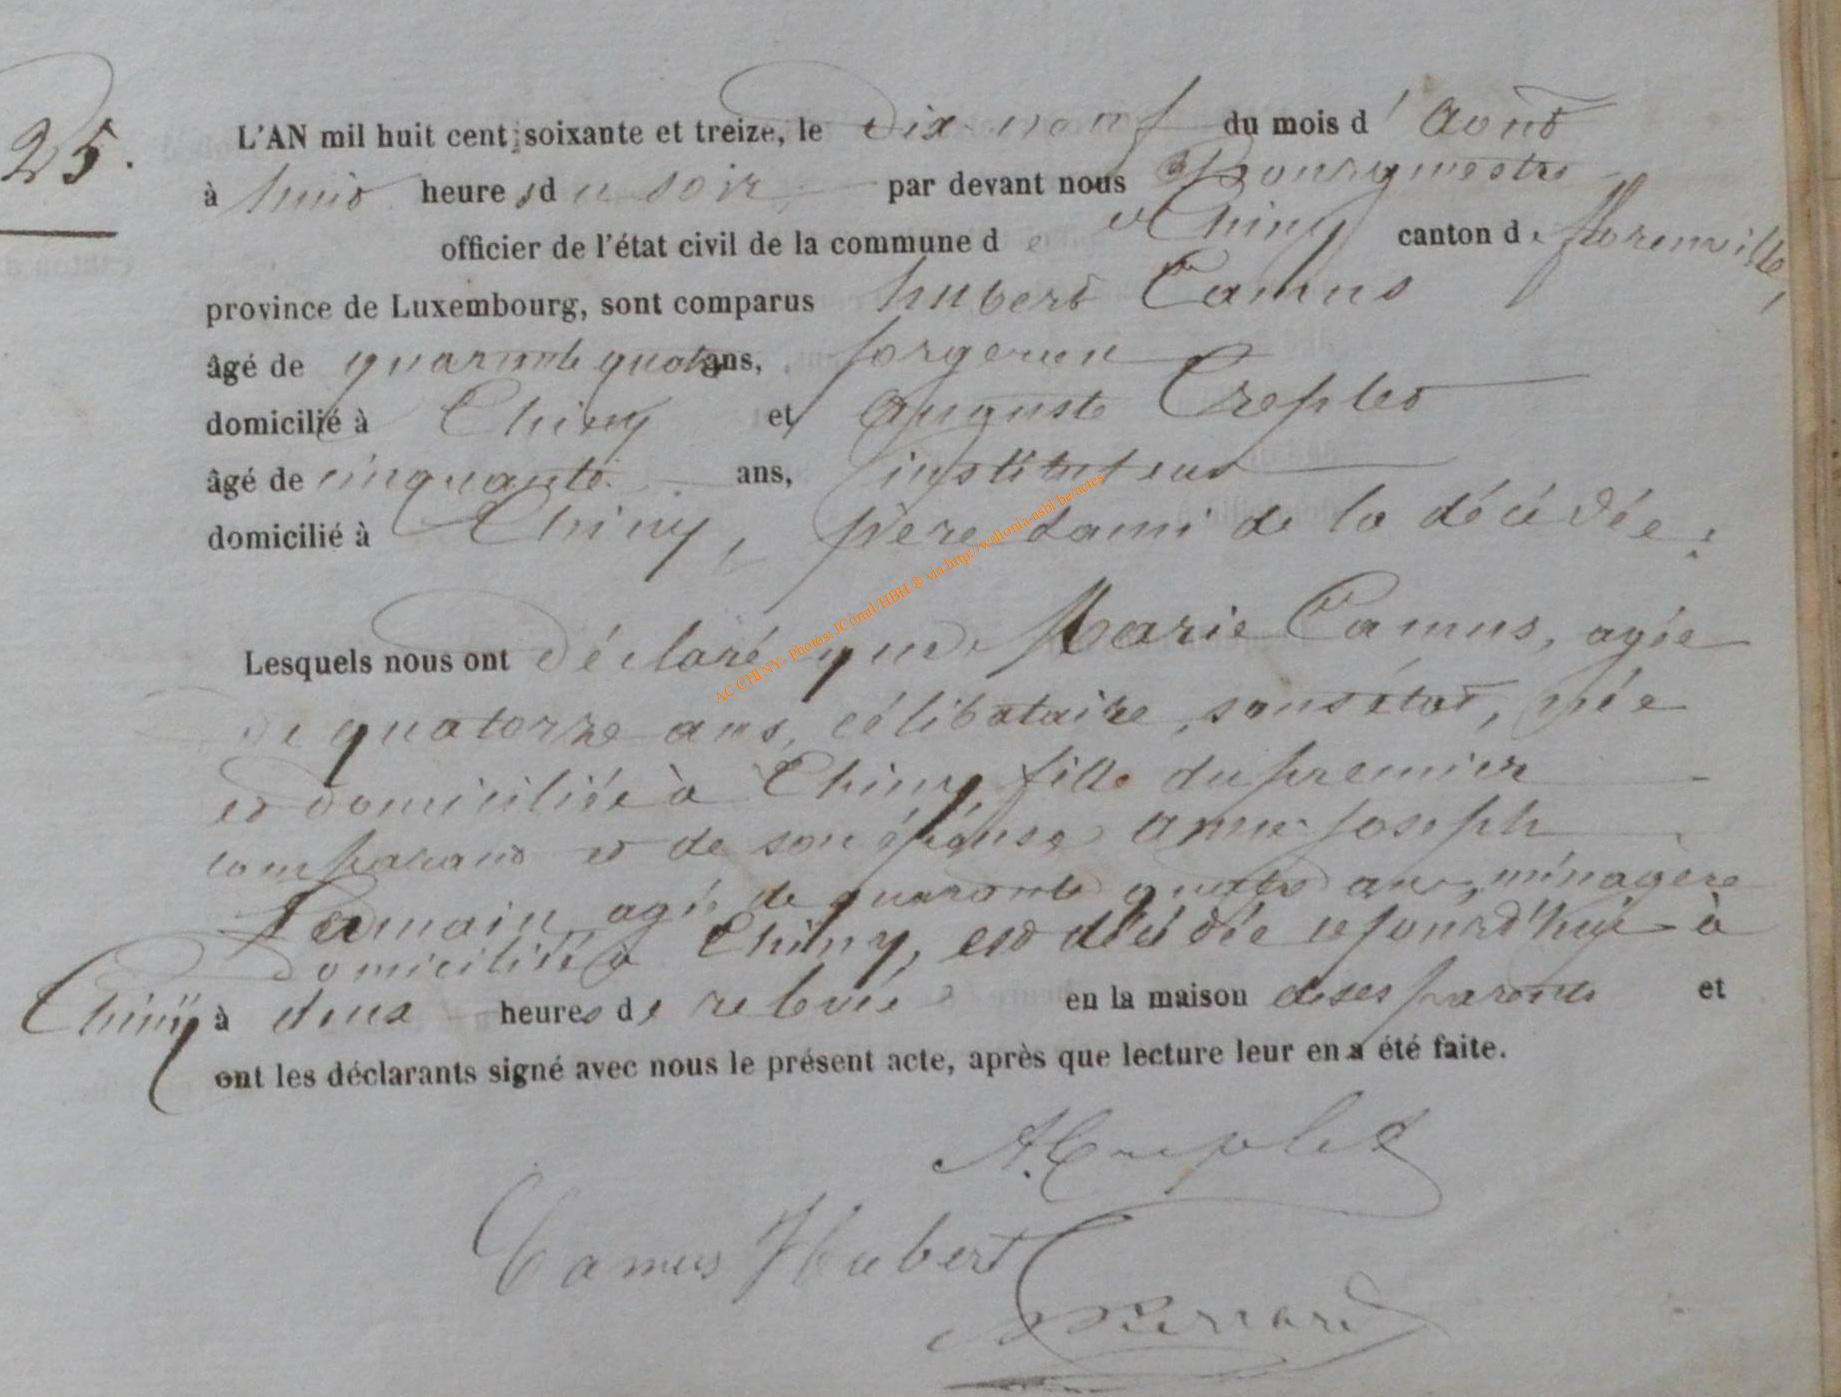 25.
L'AN mil huit cent soixante et treize, le Dix-neuf du mois d' Août
à huit heures du soir par devant nous Bourgmestre
officier de l'état civil de la commune de Chiny canton de Florenville,
province de Luxembourg, sont comparus hubert Camus
âgé de quarante quatre ans, forgeron
domicilié à Chiny et Auguste Creplet
âgé de cinquante ans, instituteur
domicilié à Chiny, père & ami de la décédée;
Lesquels nous ont déclaré que Marie Camus, agée
de quatorze ans, célibataire, sans état, née
et domiciliée à Chiny, fille du premier
comparant et de son épouse Anne Joseph
agée de quarante quatre ans, ménagère
domiciliée à Chiny, est décédée cejourd'hui à
Chiny à deux heures de relevée en la maison de ses parents et
ont les déclarants signé avec nous le présent acte, après que lecture leur en a été faite.
A. Creplet
Camus Hubert
AC CHINY- Photos: JComil/HBH ® via http://wallonia-asbl.be/actes